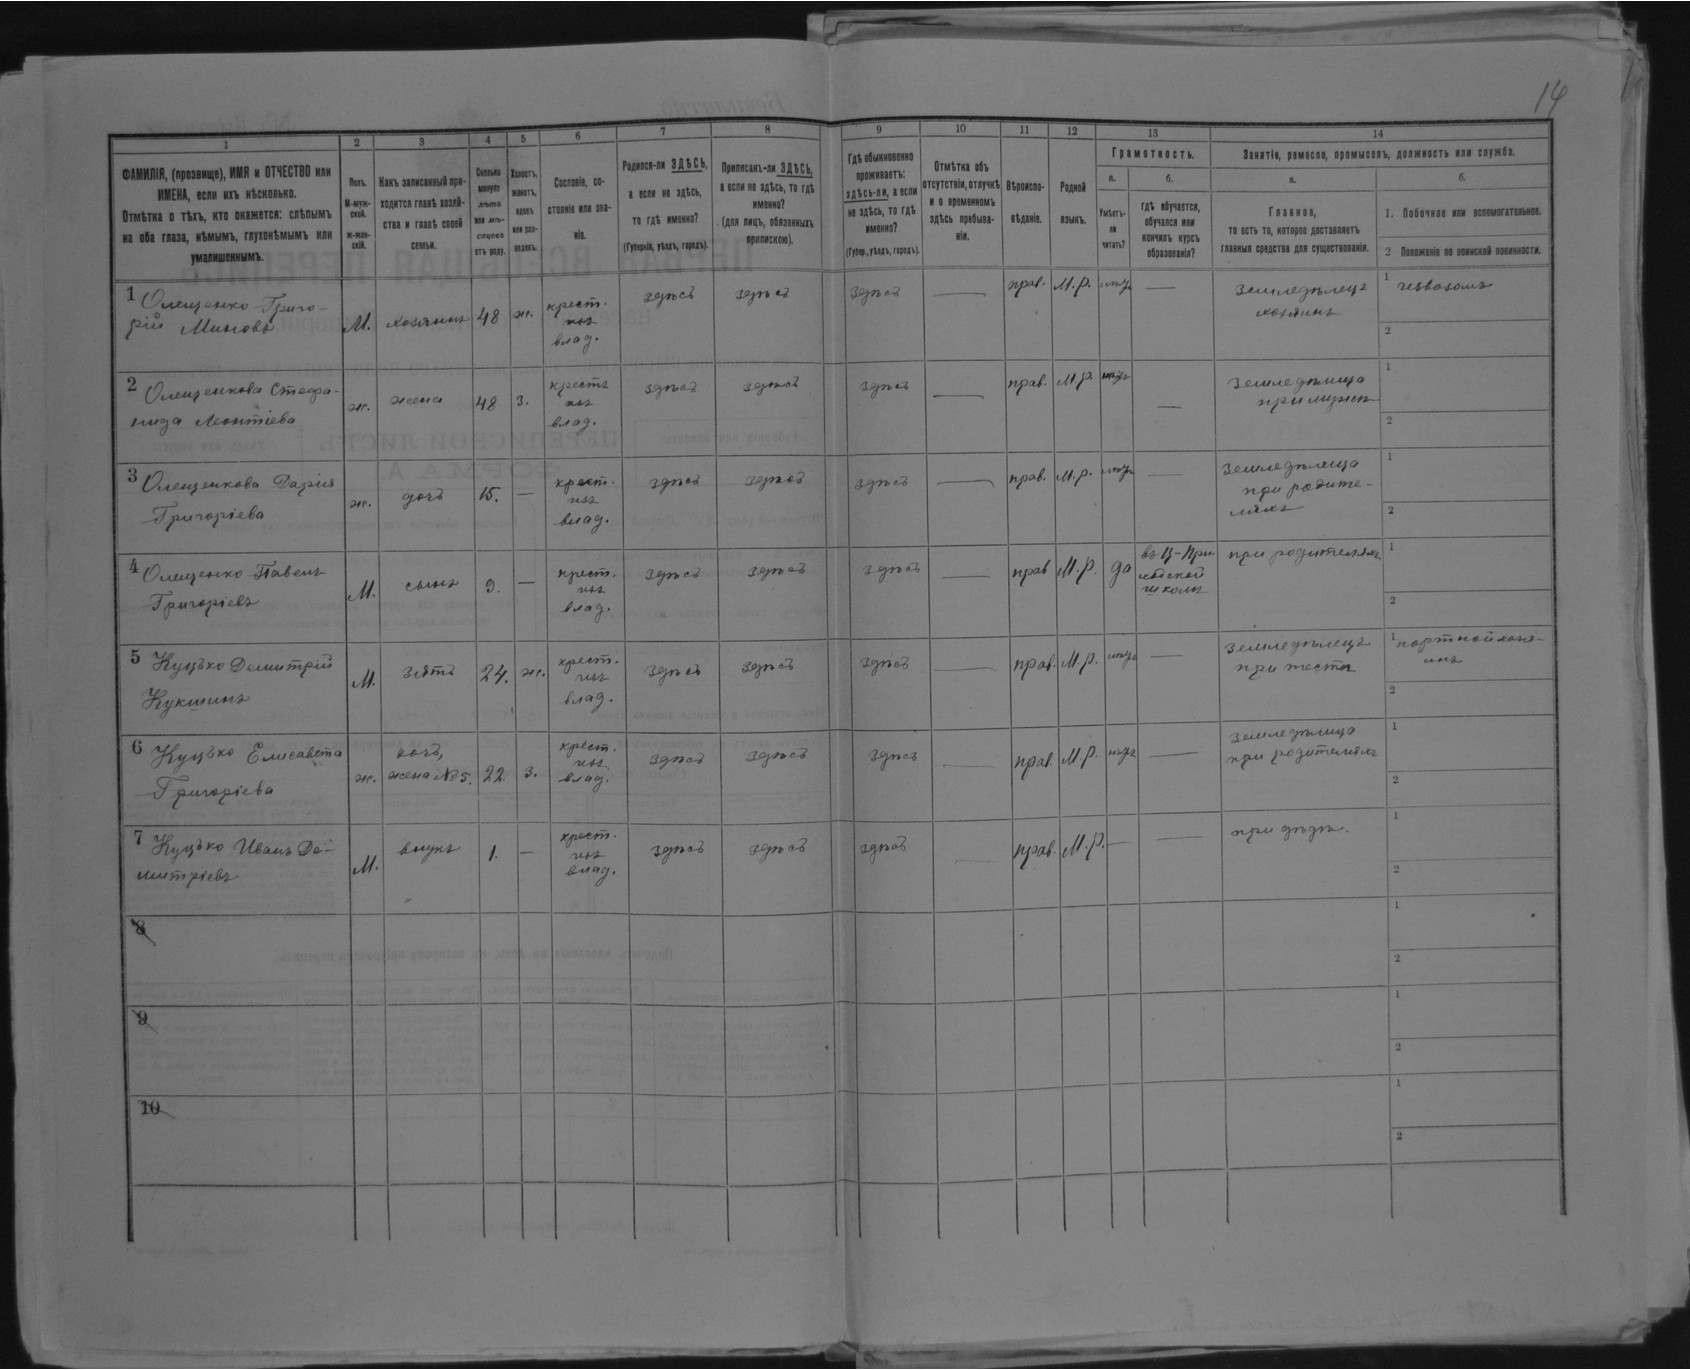 14
1
2
3
4
5
6
7
8
9
10
11
12
13
14
ФАМИЛІЯ, (прозвище), ИМЯ и ОТЧЕСТВО или
ИМЕНА, если ихъ нѣсколько.
Отмѣтка о тѣхъ, кто окажется: слѣпымъ
на оба глаза, нѣмымъ, глухонѣмымъ или
умалишеннымъ.
Полъ.
М-муж-
ской.
ж-жен-
скій.
Какъ записанный при-
ходится главѣ хозяй-
ства и главѣ своей
семьи.
Сколько
минуло
лѣтъ
или мѣ-
сяцевъ
отъ роду.
Холостъ,
женатъ,
вдовъ
или раз-
веденъ.
Сословіе, со-
стояніе или зва-
ніе.
Родился-ли ЗДѢСЬ,
а если не здѣсь,
то гдѣ именно?
(Губернія, уѣздъ, городъ).
Приписанъ-ли ЗДѢСЬ,
а если не здѣсь, то гдѣ
именно?
(для лицъ, обязанныхъ
припискою).
Гдѣ обыкновенно
проживаетъ:
здѣсь-ли, а если
не здѣсь, то гдѣ
именно?
(Губер., уѣздъ, городъ).
Отмѣтка объ
отсутствіи, отлучкѣ
и о временномъ
здѣсь пребыва-
ніи.
Вѣроиспо-
вѣданіе.
Родной
языкъ.
Грамотность.
а.
Умѣетъ-
ли
читать?
б.
Гдѣ обучается,
обучался или
кончилъ курсъ
образованія?
Занятіе, ремесло, промыселъ, должность или служба.
а.
Главное,
то есть то, которое доставляетъ
главныя средства для существованія.
б.
1. Побочное или вспомогательное.
2 Положеніе по воинской повинности.
1 Олещенко Григо-
рій Миновъ
М.
хозяинъ
48
ж.
крест.
изъ
влад.
здѣсь
здѣсь
здѣсь
—
прав.
М.р.
нѣтъ
—
земледѣлецъ
хозяинъ
1
2
2 Олещенкова Стефа-
нида Леонтіева
ж.
жена
48
з.
крестъ
изъ
влад.
здѣсь
здѣсь
здѣсь
—
прав.
М.р.
нѣтъ
—
земледѣлица
при мужѣ
1
2
3 Олещенкова Дарія
Григоріева
ж.
дочь
15.
—
крест.
изъ
влад.
здѣсь
здѣсь
здѣсь
—
прав.
М.р.
нѣтъ
—
земледѣлица
при родите-
ляхъ
1
2
4 Олещенко Павелъ
Григоріевъ
М.
сынъ
9.
—
крест.
изъ
влад.
здѣсь
здѣсь
здѣсь
—
прав
М.р.
да
въ Ц-При-
ходской
школѣ
при родителяхъ
1
2
5 Куцько Демитрій
Кукшинъ
М.
зять
24.
ж.
крест.
изъ
влад.
здѣсь
здѣсь
здѣсь
—
прав.
М.р.
нѣтъ
—
земледѣлецъ
при тестѣ
1 портной хозя-
инъ
2
6 Куцько Елисавета
Григоріева
ж.
дочь,
жена №5.
22.
з.
крест.
изъ
влад.
здѣсь
здѣсь
здѣсь
—
прав.
М.р.
нѣтъ
—
земледѣлица
при родителяхъ
1
2
7 Куцько Иванъ Де-
митріевъ
М.
внукъ
1.
—
крест.
изъ
влад.
здѣсь
здѣсь
здѣсь
—
прав.
М.р.
—
—
при дѣдѣ.
1
2
8
1
2
9
1
2
10
1
2